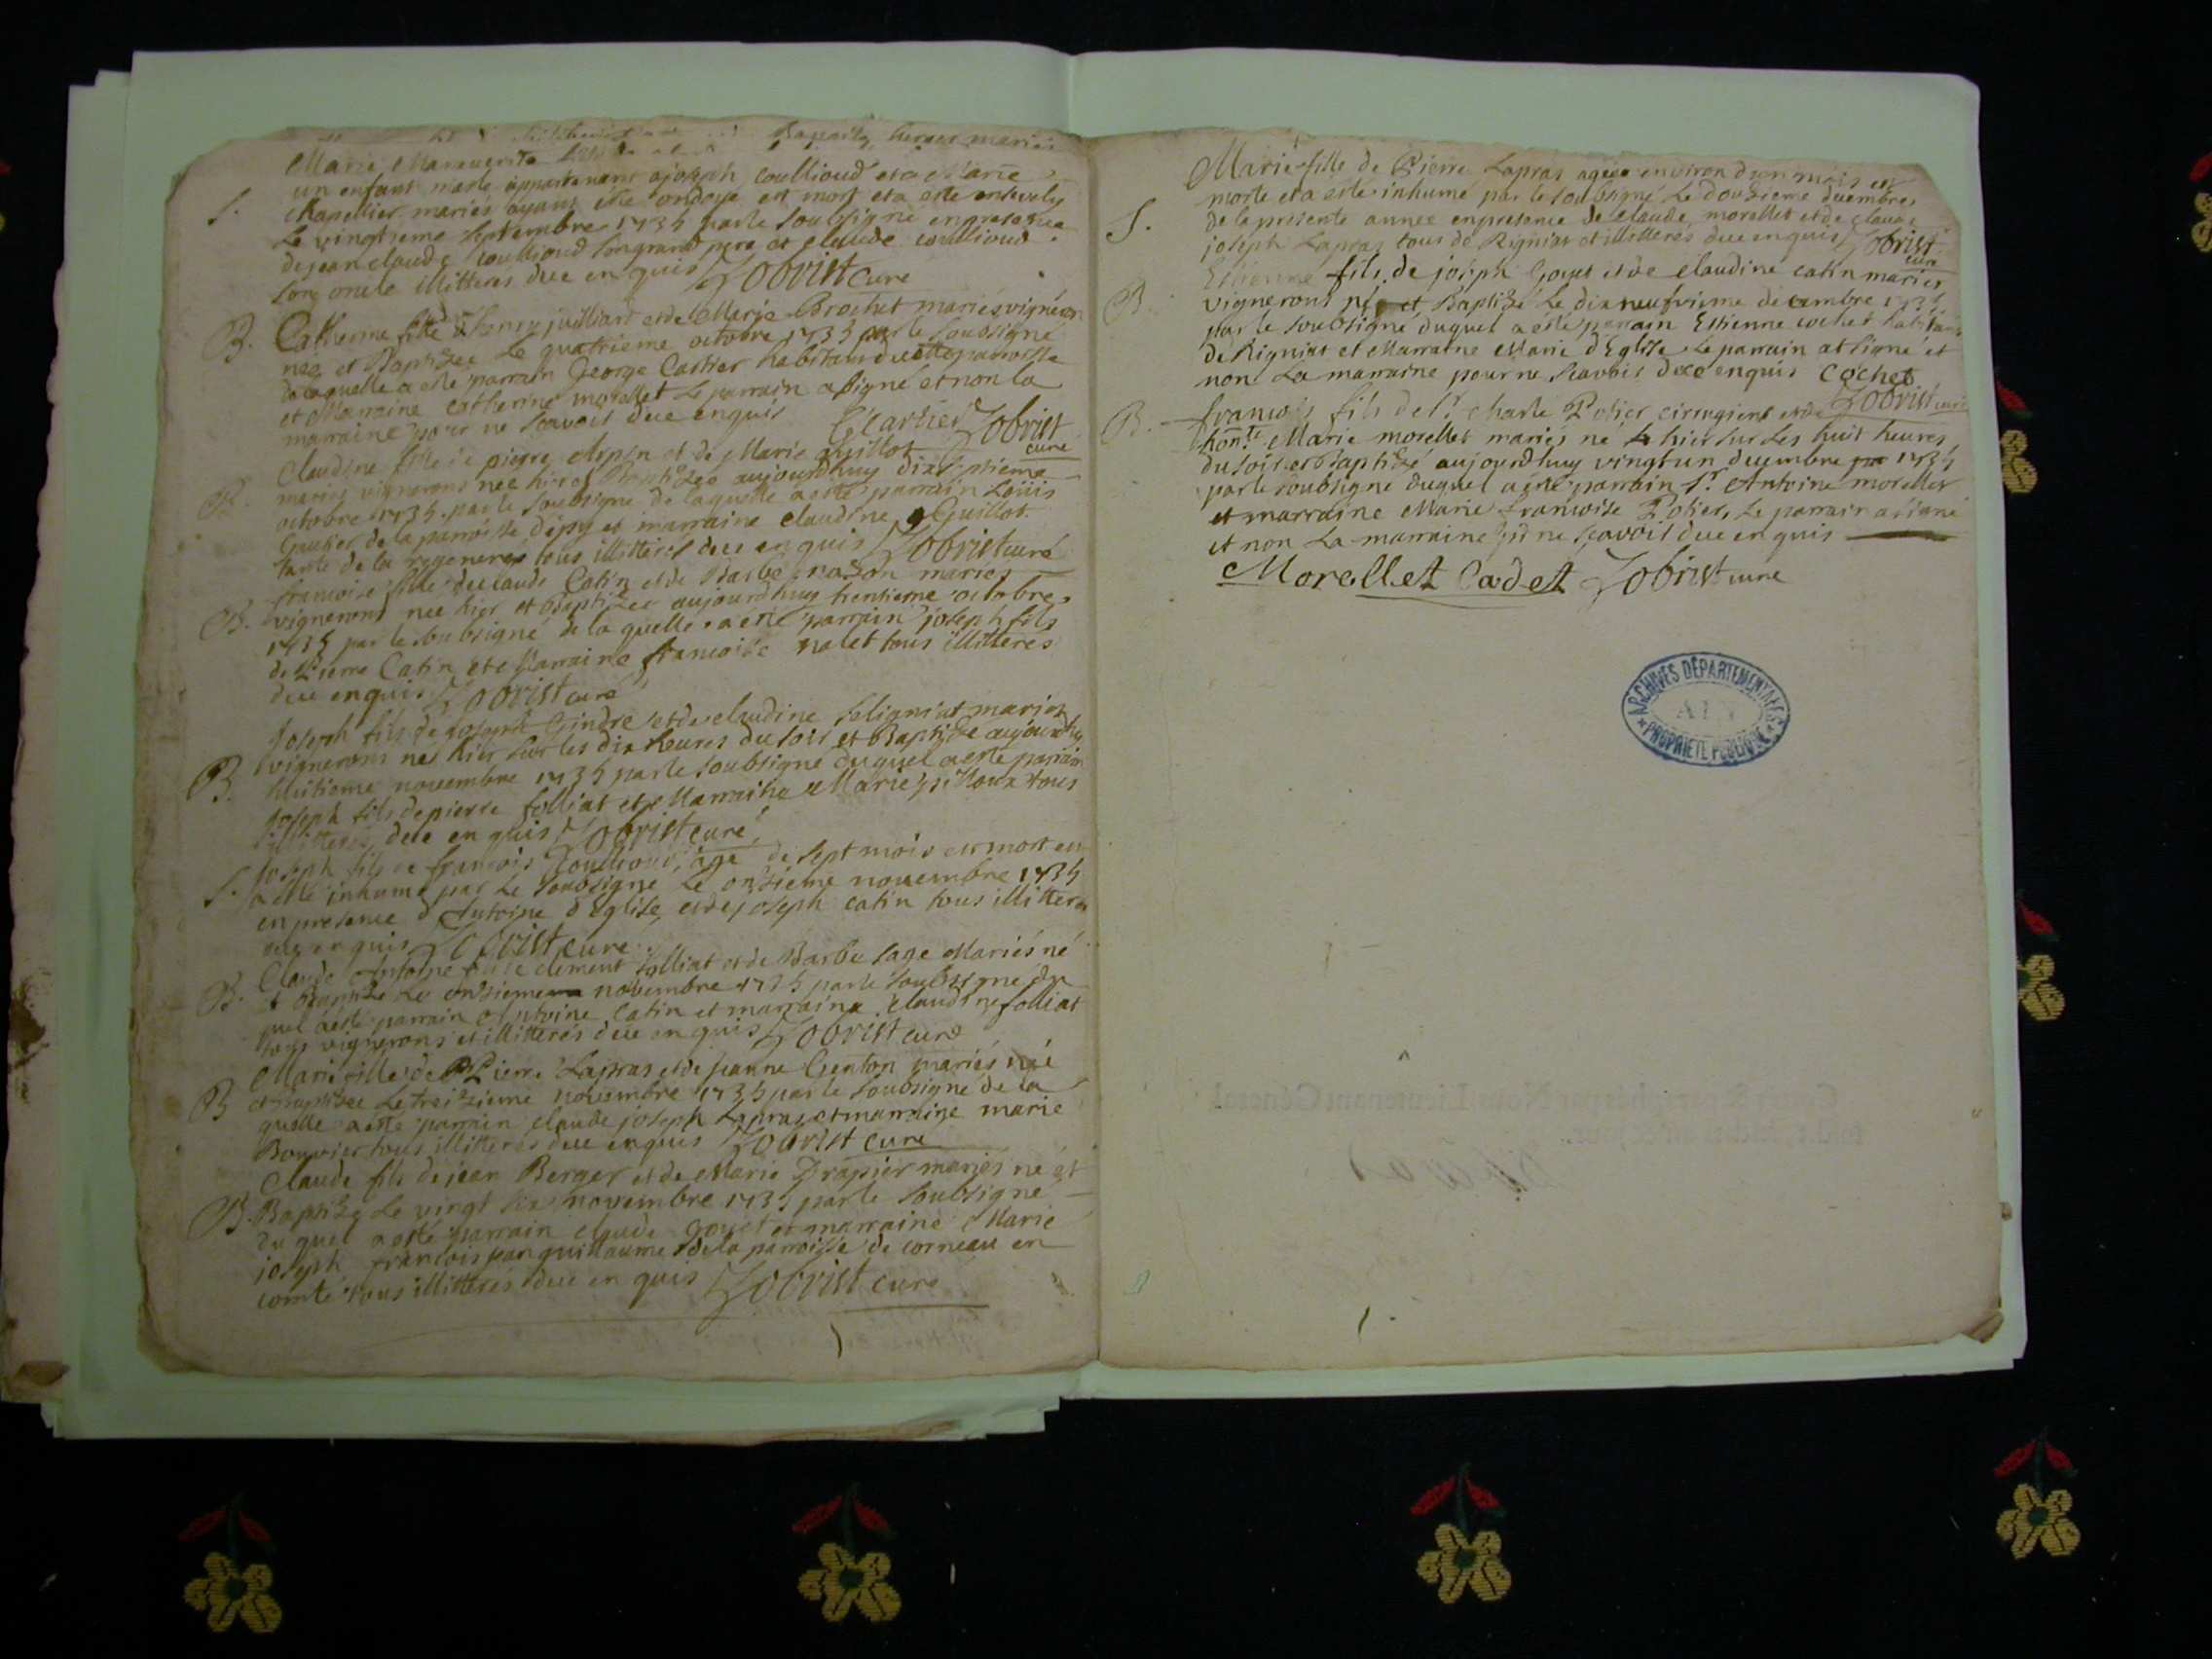 Marie Marguerite
S. un enfant masle appartenant a joseph coullioud et a Marie
Chapellier mariés ayant esté ondoyé est mort et a esté ensevely
Le vingtieme septembre 1735 par le soubsigné en presence
de jean claude coullioud son grand pere et claude coullioud
son oncle illitterés deue enquis Zobrist curé
B. Catherine fille d'henry juilliard et de Marie Brochet mariés vigneron
née et Baptizée Le quatrieme octobre 1735 par le soubsigné
de laquelle a esté parrain George Cartier habitant de cette parroisse
et Marraine catherine morellet Le parrain a signé et non la
marraine pour ne scavoir deue enquis Cartier Zobrist
curé
B. Claudine fille de pierre Arpin et de Marie Guillot
mariés vignerons née hier et Baptizée aujourdhuy dixseptieme
octobre 1735 par le soubsigné de laquelle a esté parrain Loüis
Gautier de la parroisse depsy et marraine claudine Guillot
tante de la regenerée tous illitterés deue enquis Zobrist curé
B. francoise fille de claude Catin et de Barbe mariés
vignerons née hier et Baptizée aujourdhuy trentieme octobre
1735 par le soubsigné de la quelle a esté parrain joseph fils
de Pierre Catin et Marraine francoise nalet tous illitterés
deue enquis Zobrist curé
Joseph fils de joseph Gindre et de claudine seligniat mariés
B. vignerons né hier sur les dix heures du soir et Baptizé aujourdhuy
huitieme novembre 1735 par le soubsigné duquel a esté parrain
joseph fils de pierre folliat et Marraine Marie tous
illitterés deue enquis Zobrist curé
S. joseph fils de francois Coullioud, agé de sept mois est mort et
a esté inhumé par Le soubsigné Le onzieme novembre 1735
en presence d'Antoine d'Eglise et de joseph catin tous illitterés
deue enquis Zobrist curé
B. Claude Antoine fils de clement folliat et de Barbe sage Mariés né
et Baptizé Le onzieme novembre 1735 par le soubsigné du
quel a esté parrain Antoine Catin et marraine Claudine folliat
tous vignerons et illitterés deue enquis Zobrist curé
Marie fille de Pierre Lapras et de jeanne Genton mariés née
B et Baptizée Le treizieme novembre 1735 par le soubsigné de la
quelle a esté parrain claude joseph Lapras et marraine marie
Bouvier tous illitterés deue enquis Zobrist curé
Claude fils de jean Berger et de Marie Drapier mariés né et
B. Baptizé Le vingt six novembre 1735 par le soubsigné
Du quel a esté parrain claude goyet et marraine Marie
joseph francois jean guillaume de la parroisse de corneau en
comté tous illitterés deue en quis Zobrist curé
Marie fille de Pierre Lapras agée environ d'un mois est
S. morte et a esté inhumé par le soubsigné Le Douzieme decembre
de la presente année en presence de claude morellet et de claude
joseph Lapras tous de Rigniat et illitterés deue enquis Zobrist
curé
Estienne fils de joseph Goyet et de claudine catin mariés
B. vignerons né et Baptizé Le dix neufvieme decembre 1735
par le soubsigné duquel a esté parrain Estienne cochet habitant
de Rigniat et Marraine Marie d'Eglise Le parrain at signé et
non La marraine pour ne scavoir deue enquis Cochet
B. francois fils de Sr. Charle Potier cirrugient et de Zobrist curé
honte. Marie morellet mariés né hier sur Les huit heures
du soir et Baptizé aujourdhuy vingt un decembre 1735
par le soubsigné duquel a esté parrain Sr. Antoine morellet
et marraine Marie francoise Potier, Le parrain a signé
et non La marraine pour ne scavoir deue en quis
Morellet Cadet Zobrist curé
ARCHIVES DÉPARTEMENTALES
AIN
PROPRIÉTÉ PUBLIQUE